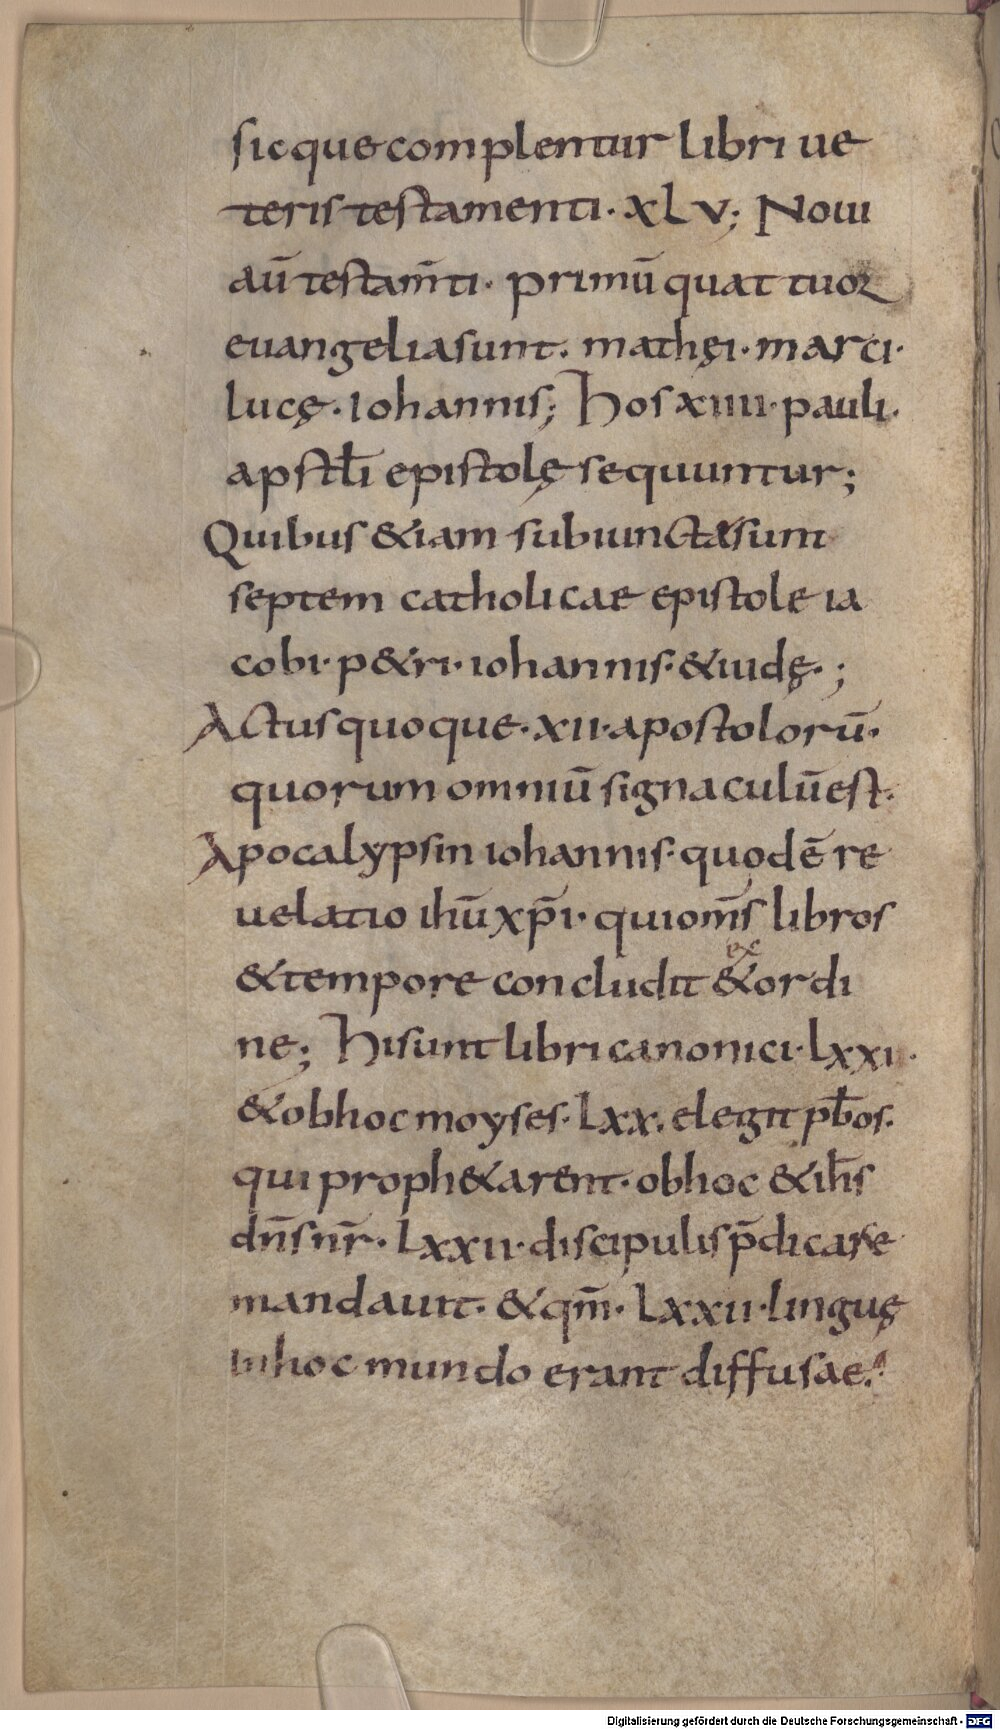 sicque complentur libri ue
teris testamenti· XLV; Noui
aū testam̄ti· primū quattuor
euangelia sunt. mathęi· marci·
lucę· Iohannis; Hos XIIII· pauli·
apstłi epistolę sequuntur;
Quibus &iam subiunctae sunt
septem catholicae epistole ia
cobi· p&ri· iohannis· & iudę· ;
Actus quoque· XII· apostolorū·
quorum omniū signaculū est·
Apocalypsin iohannis· quod ē re
uelatio ihū xp̄i· qui om̄s libros
& tempore concludit & ordi
ex
ne; Hi sunt libri canonici· LXXII·
& ob hoc moyses· LXX· elegit pƀos·
qui proph&arent· ob hoc & ih̄s
dn̄s nr̄· LXXII· discipulis p̄dicare
mandauit· & qm̄· LXXII· linguę
in hoc mundo erant diffusae·
Digitalisierung gefördert durch die Deutsche Forschungsgemeinschaft - DFG